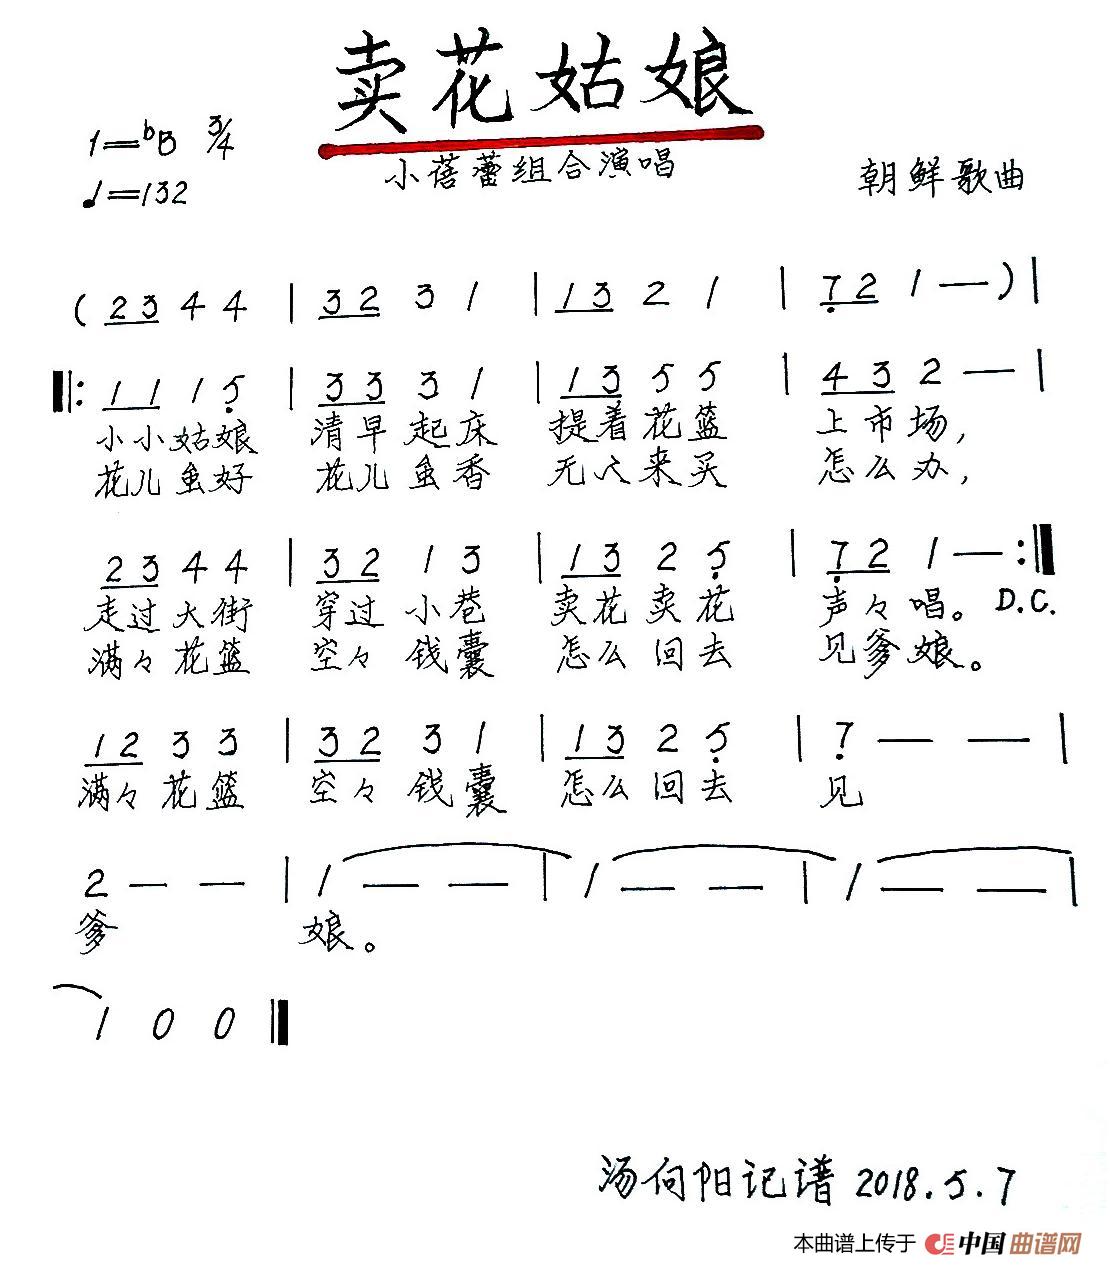 卖花姑娘
1=♭B 3/4
♩=132
小蓓蕾组合演唱
朝鲜歌曲
( 2 3 4 4 | 3 2 3 1 | 1 3 2 1 | 7 2 1 — ) |
‖: 1 1 1 5 | 3 3 3 1 | 1 3 5 5 | 4 3 2 — |
小小姑娘 清早起床 提着花篮 上市场,
花儿虽好 花儿虽香 无人来买 怎么办,
2 3 4 4 | 3 2 1 3 | 1 3 2 5 | 7 2 1 — :‖
走过大街 穿过小巷 卖花卖花 声々唱。 D.C.
满々花篮 空々钱囊 怎么回去 见爹娘。
1 2 3 3 | 3 2 3 1 | 1 3 2 5 | 7 — — |
满々花篮 空々钱囊 怎么回去 见
2 — — | 1 — — | 1 — — | 1 — — |
爹 娘。
1 0 0 ‖
汤向阳记谱 2018.5.7
本曲谱上传于 中国曲谱网